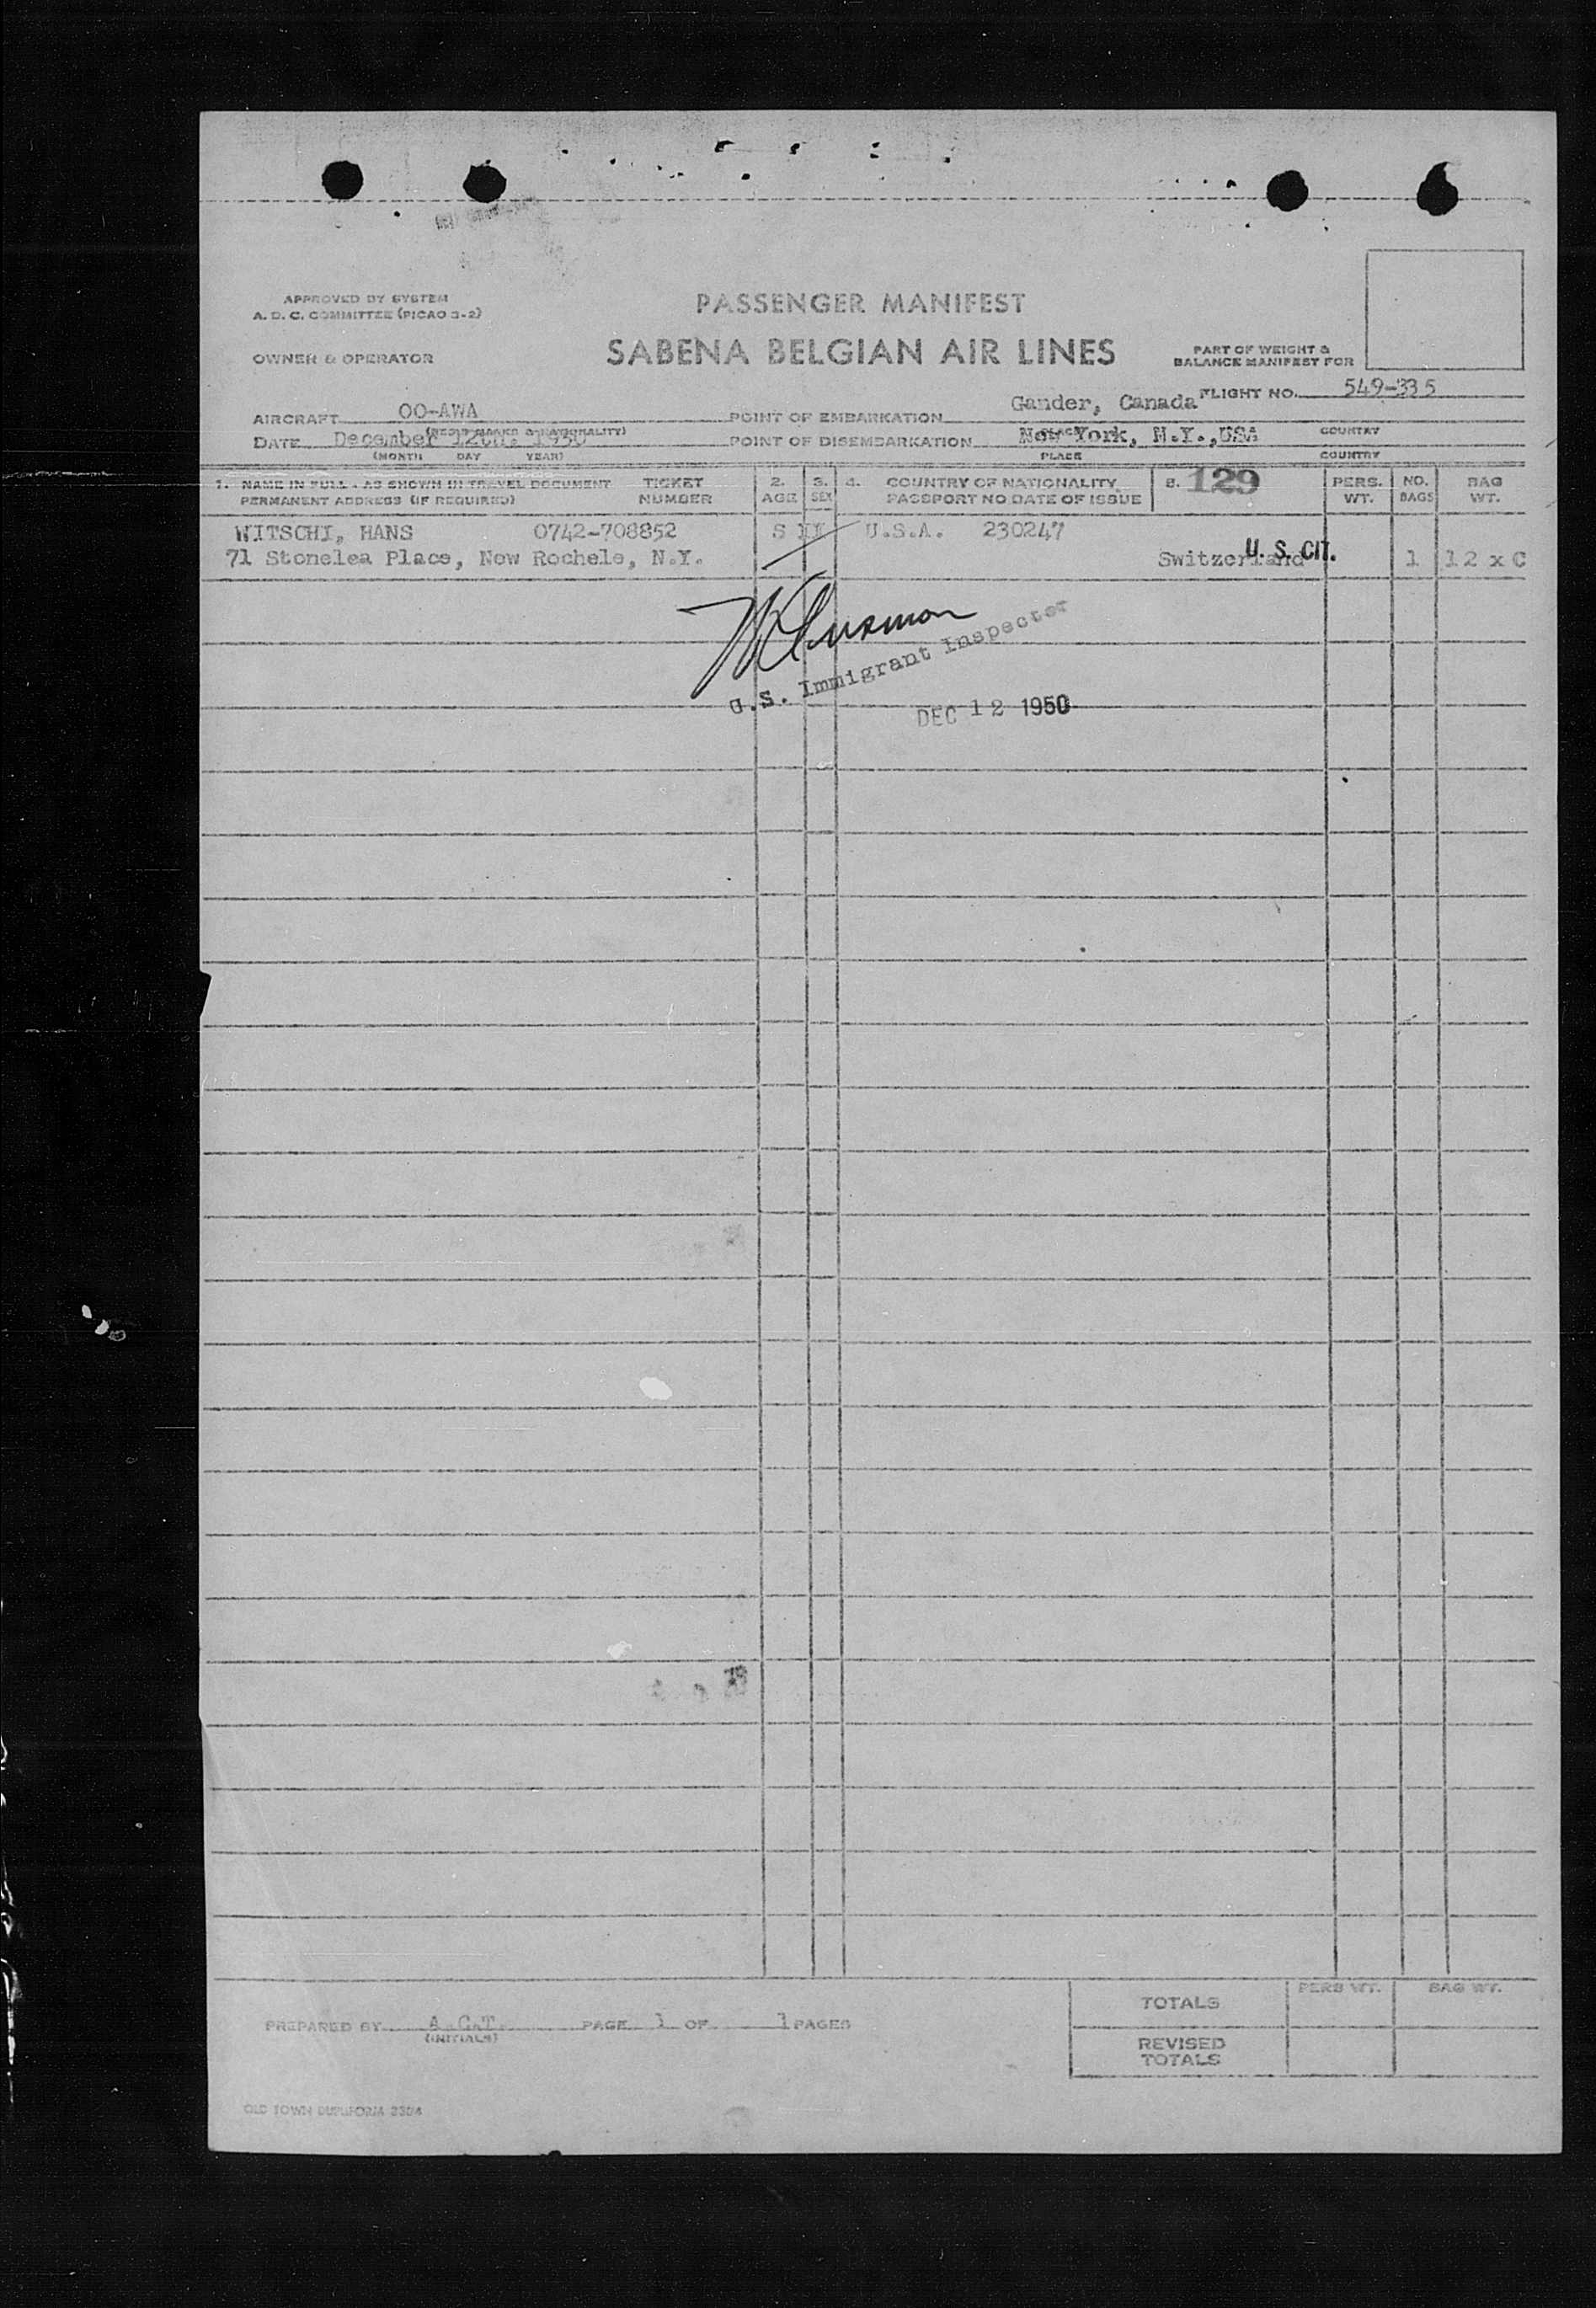 APPROVED BY SYSTEM
A. D. C. COMMITTEE (PICAO 3-2)
OWNER & OPERATOR
PASSENGER MANIFEST
SABENA BELGIAN AIR LINES
PART OF WEIGHT &
BALANCE MANIFEST FOR
FLIGHT NO. 549-335
AIRCRAFT OO-AWA
POINT OF EMBARKATION Gander, Canada
DATE December 12th, 1950
(MONTH DAY YEAR)
POINT OF DISEMBARKATION New York, N.Y.,USA
COUNTRY
PLACE COUNTRY
1. NAME IN FULL - AS SHOWN IN TRAVEL DOCUMENT
PERMANENT ADDRESS (IF REQUIRED)
TICKET
NUMBER
2.
AGE
3.
SEX
4. COUNTRY OF NATIONALITY,
PASSPORT NO DATE OF ISSUE
129
PERS.
WT.
NO.
BAGS
BAG
WT.
WITSCHI, HANS 0742-708852 S U.S.A. 230247
71 Stonelea Place, New Rochele, N.Y. Switzerland U. S. CIT. 1 12 x C
U.S. Immigrant Inspector
DEC 12 1950
TOTALS
PERS WT. BAG WT.
REVISED
TOTALS
PREPARED BY A.C.T. PAGE 1 OF 1 PAGES
(INITIALS)
OLD TOWN